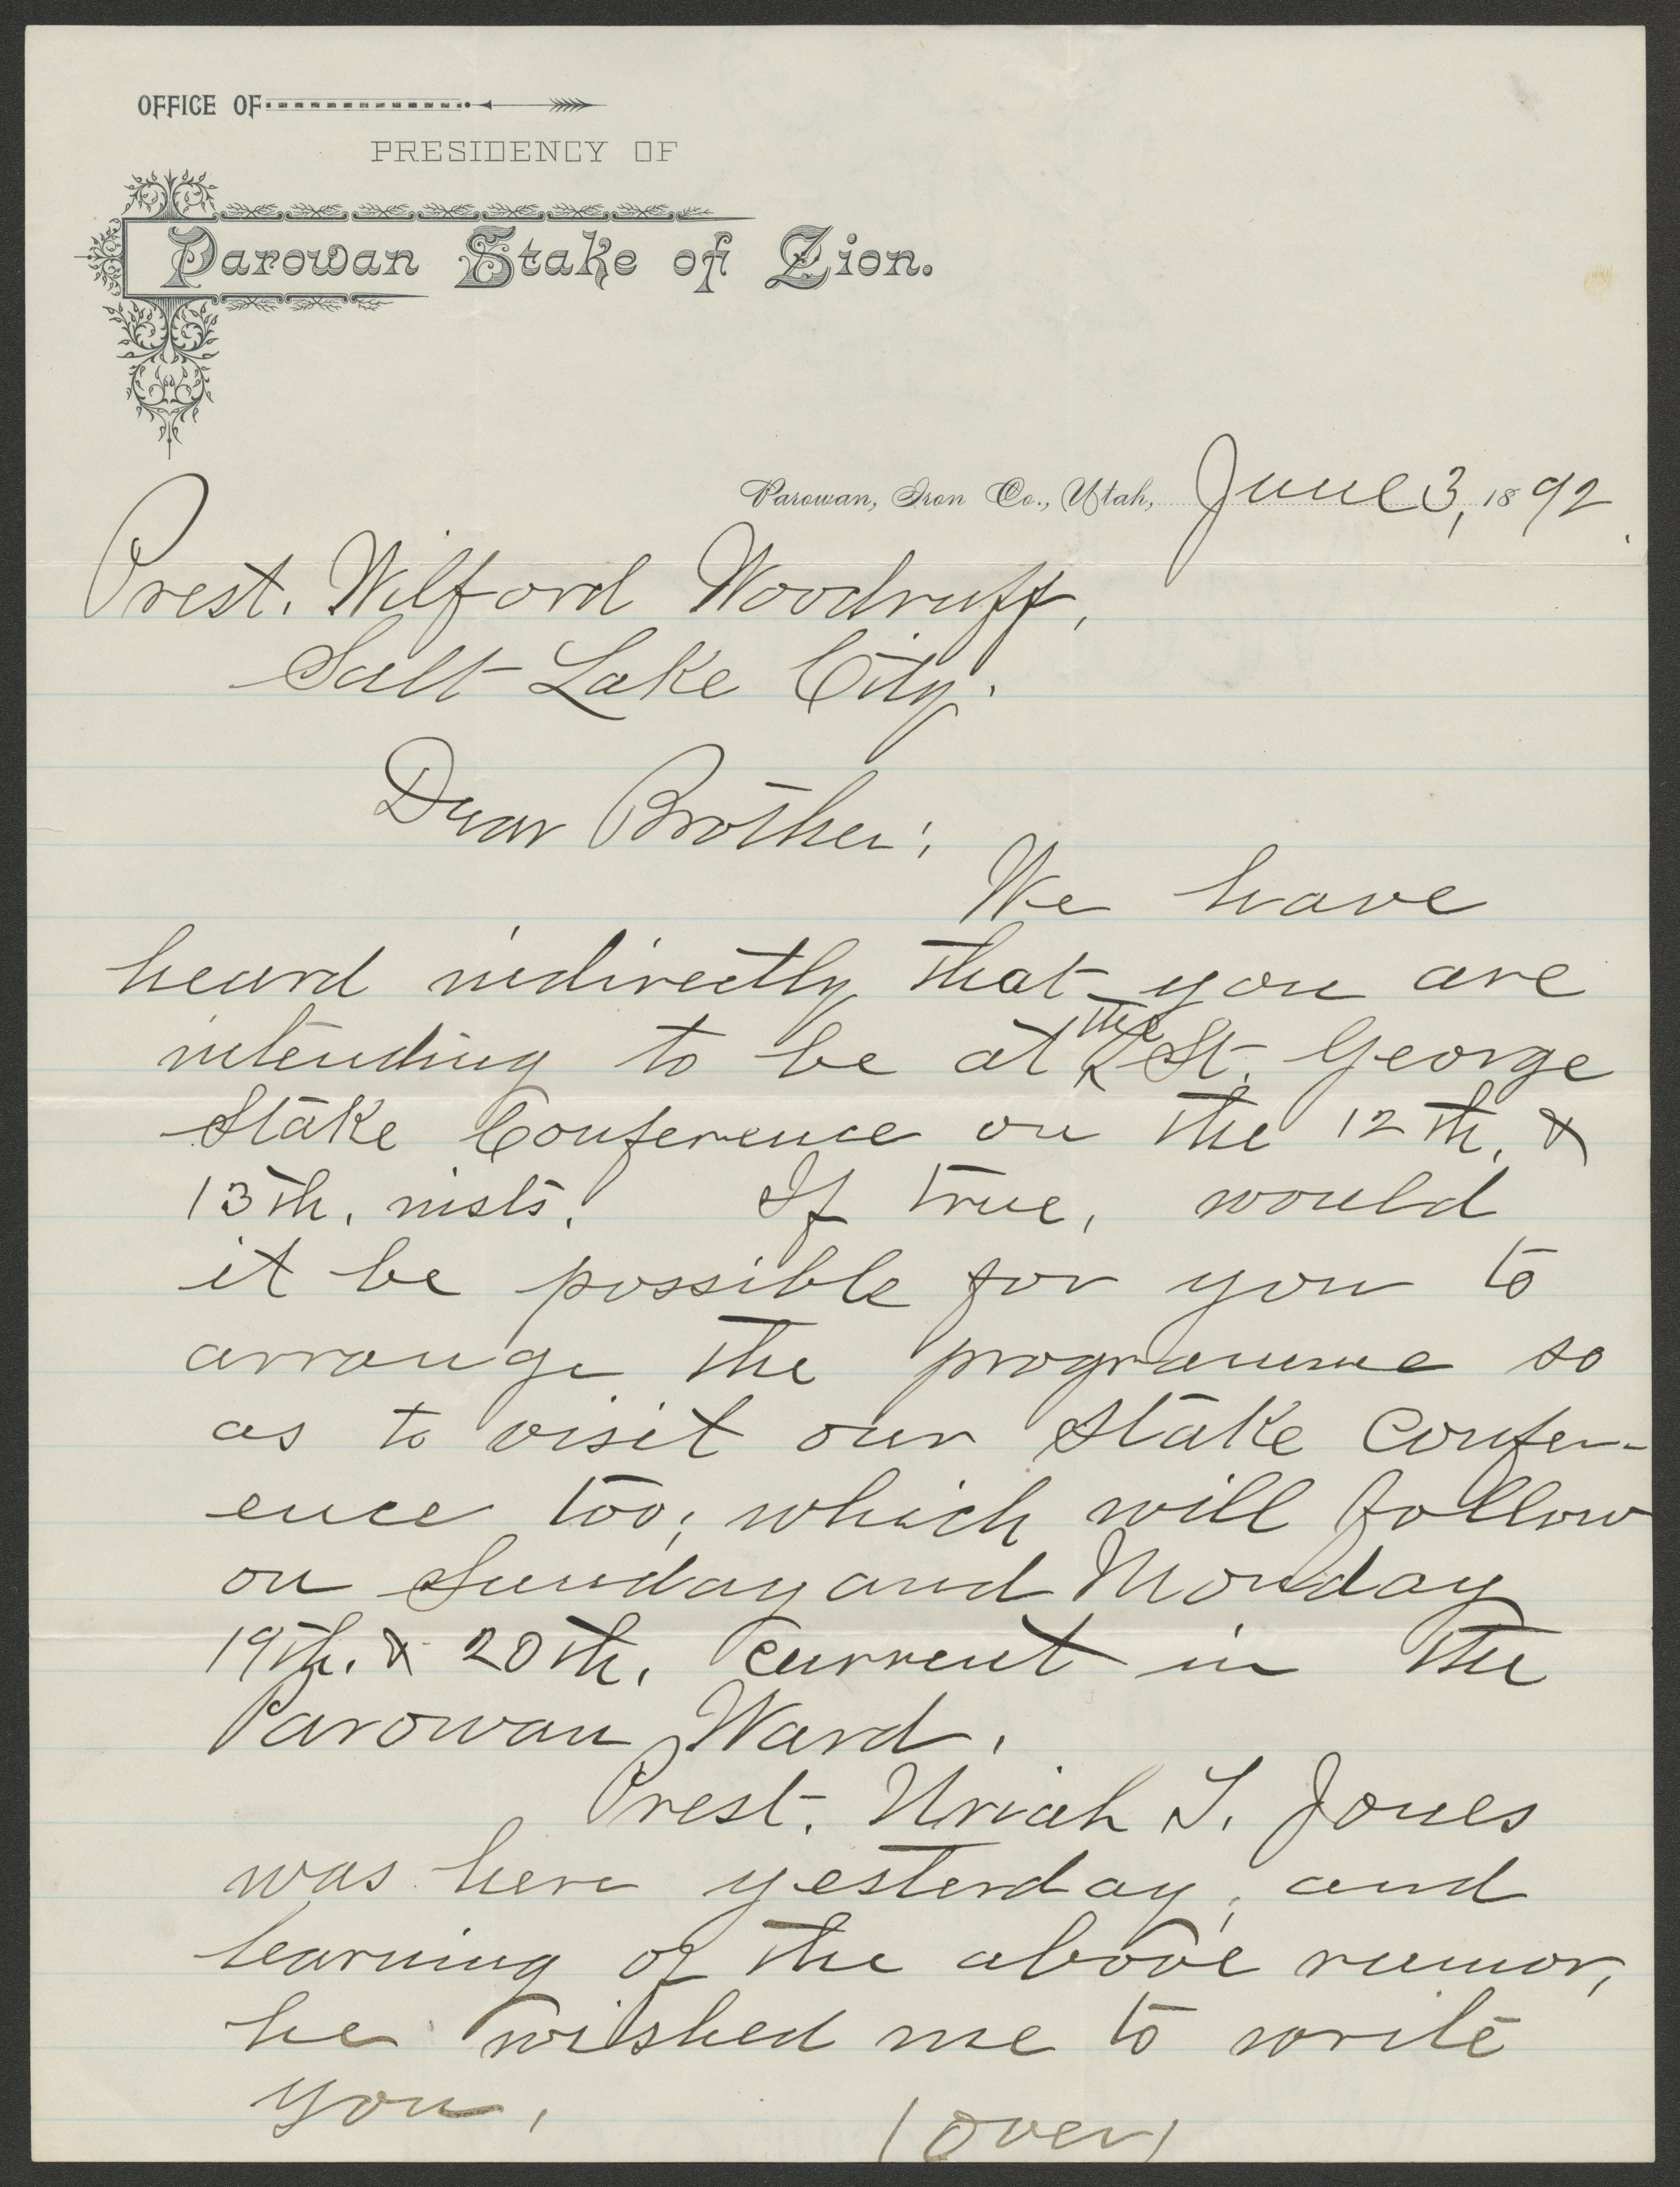 OFFICE OF
PRESIDENCY OF
Parowan Stake of Zion.
Parowan, Iron Co., Utah, June 3, 1892.
Prest. Wilford Woodruff,
Salt Lake City.
Dear Brother:
We have
heard indirectly that you are
intending to be at the St. George
Stake Conference on the 12th. &
13th. insts. If true, would
it be possible for you to
arrange the programme so
as to visit our Stake Confer-
ence too; which will follow
on Sunday and Monday
19th. & 20th. current in the
Parowan Ward.
Prest. Uriah T. Jones
was here yesterday, and
learning of the above rumor,
he wished me to write
you.
(over)